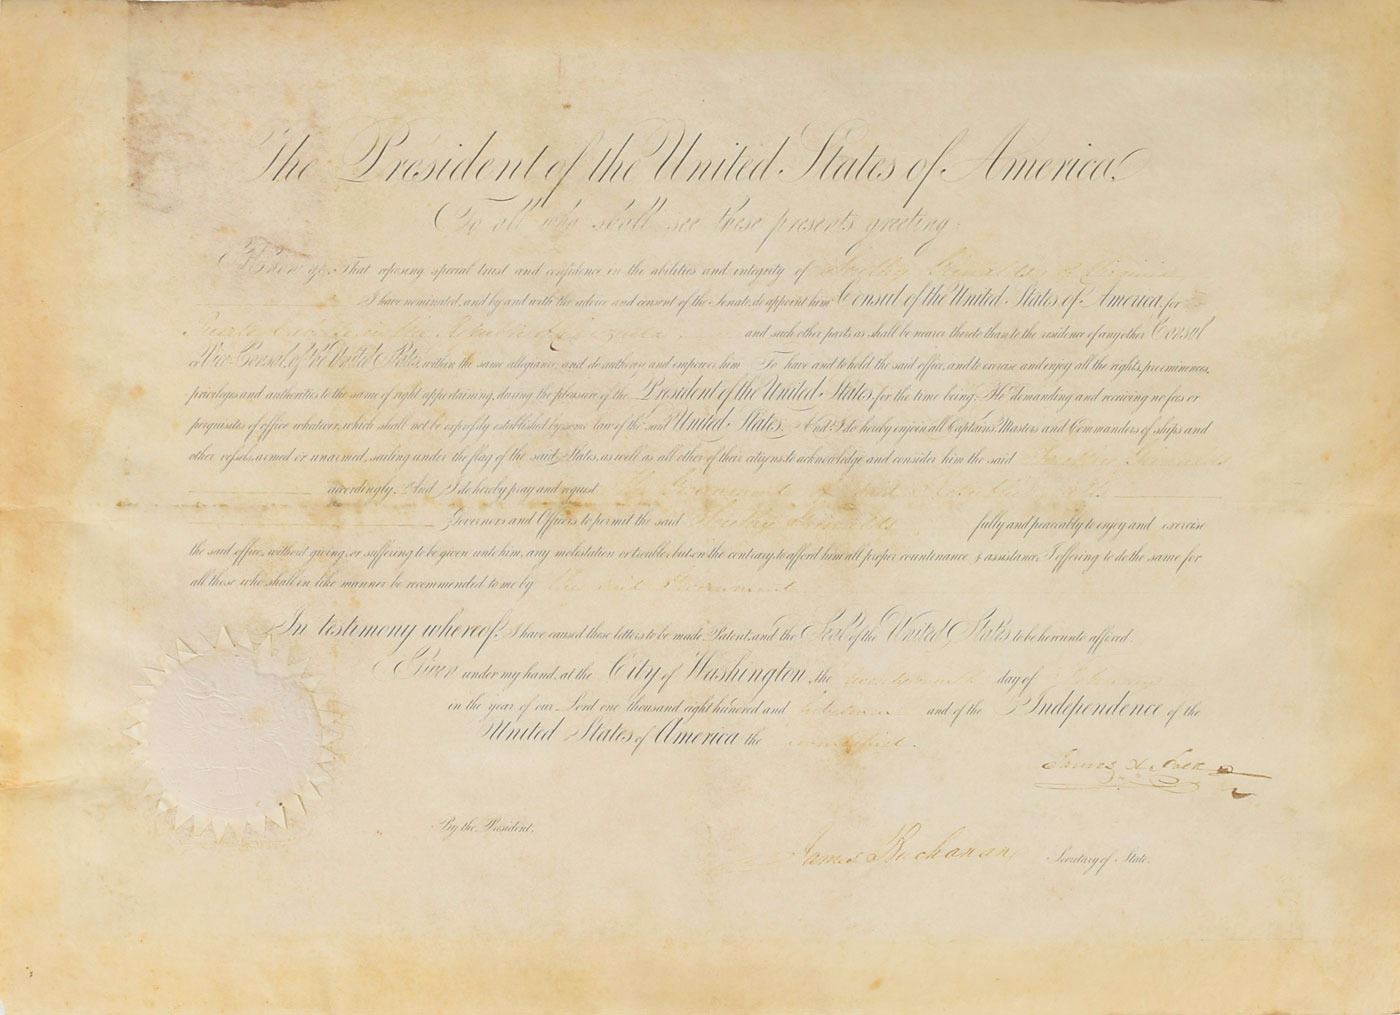 The President of the United States of America,
To all who shall see these presents greeting:
Know ye, That reposing special trust and confidence in the abilities and integrity of of Virginia
I have nominated, and by and with the advice and consent of the Senate do appoint him Consul of the United States of America, for
in the Republic of Venezuela and such other parts as shall be nearer thereto than to the residence of any other Consul
or Vice Consul, of the United States, within the same allegiance, and do authorize and empower him To have and to hold the said office, and to exercise and enjoy all the rights, preeminences,
privileges and authorities to the same of right appertaining, during the pleasure of the President of the United States, for the time being. He demanding and receiving no fees or
perquisites of office whatever, which shall not be expressly established by some law of the said United States. And I do hereby enjoin all Captains, Masters and Commanders of ships and
other vessels, armed or unarmed, sailing under the flag of the said States, as well as all other of their citizens to acknowledge and consider him the said
accordingly. And I do hereby pray and request the Government of said
Governors and Officers to permit the said fully and peaceably to enjoy and exercise
the said office, without giving, or suffering to be given unto him, any molestation or trouble, but on the contrary, to afford him all proper countenance & assistance; I offering to do the same for
all those who shall in like manner be recommended to me by the said Government
In testimony whereof, I have caused these letters to be made Patent, and the Seal of the United States to be hereunto affixed.
Given under my hand, at the City of Washington, the day of February
in the year of our Lord one thousand eight hundred and and of the Independence of the
United States of America, the
James K. Polk
By the President.
James Buchanan Secretary of State.